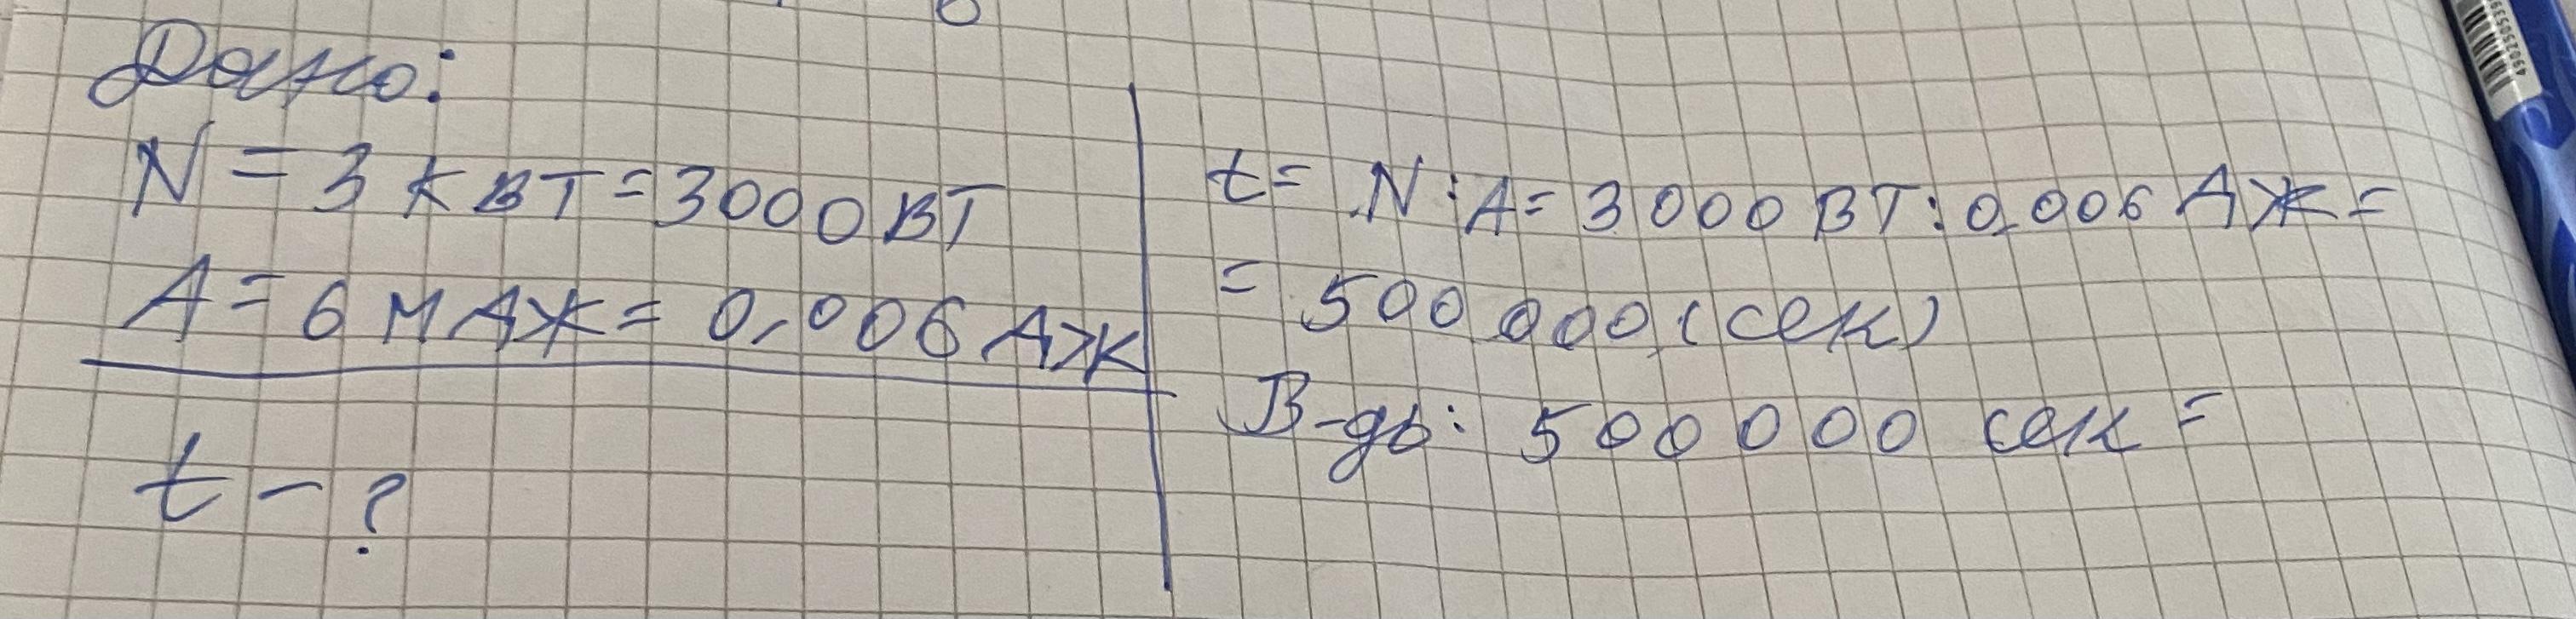 Дано:
N = 3 кВТ = 3000 ВТ
A = 6 МДЖ = 0,006 ДЖ
t - ?
t = N : A = 3000 ВТ : 0,006 ДЖ =
= 500 000 (сек)
В-дь: 500 000 сек =